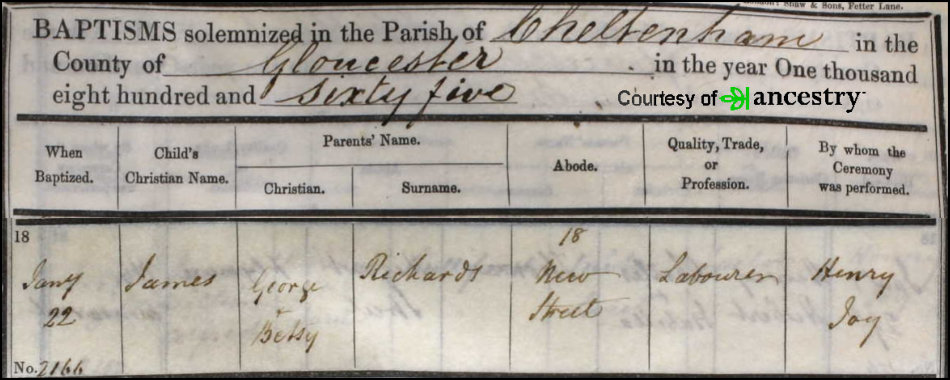 London: Shaw & Sons, Fetter Lane.
BAPTISMS solemnized in the Parish of Cheltenham in the
County of Gloucester in the year One thousand
eight hundred and sixty five
Courtesy of ancestry
When Baptized.
Child's Christian Name.
Parents' Name.
Christian.
Surname.
Abode.
Quality, Trade, or Profession.
By whom the Ceremony was performed.
18
Jany
22
James
George
&
Betsy
Richards
18
New
Street
Labourer
Henry
Joy
No. 2166